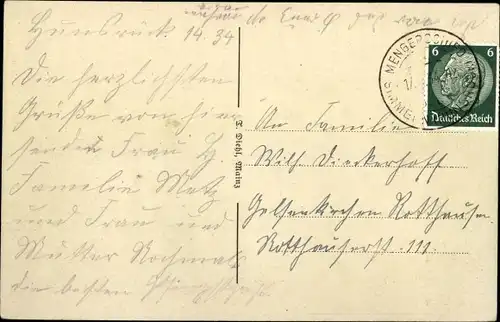 Hunsrück 14.34
Die herzlichsten
Grüße von hier
sendet Frau H.
Familie Metz
und Frau und
Mutter Nochmals
die besten
T. Diehl, Mainz
MENGERSCHIED
SIMMERN
6 6
Deutsches Reich
An Familie
Wilh Dieckerhoff
Gelsenkirchen Rotthausen
Rotthauserst. 111.